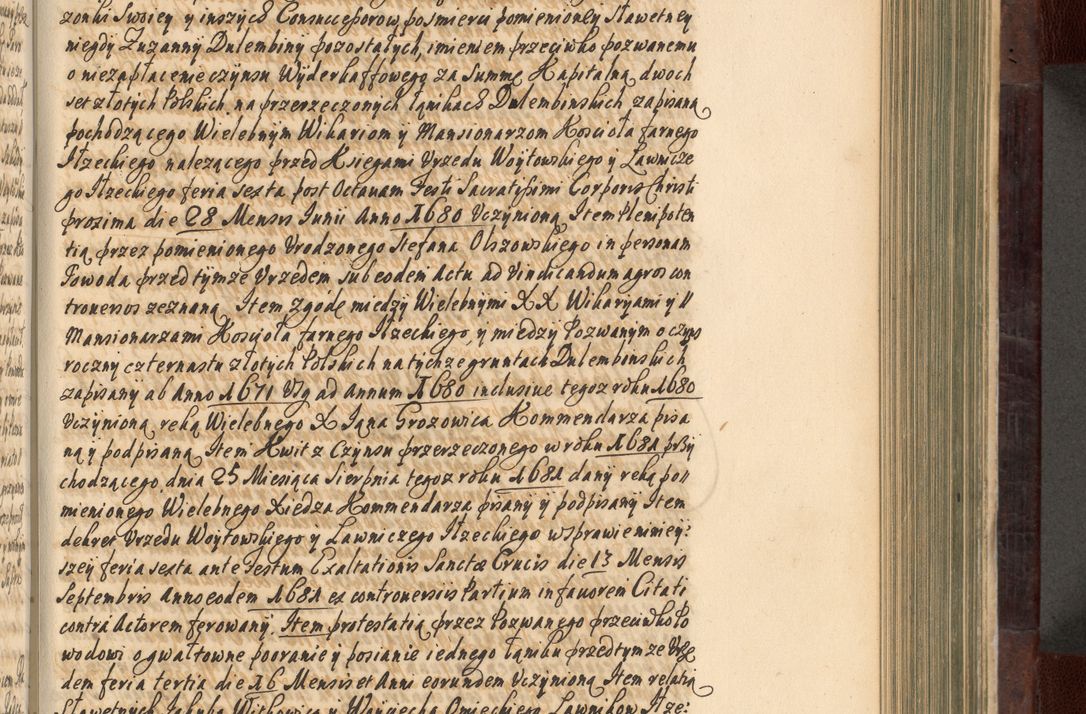 zonki Swoiey y inszych Consuccessorow, po śmierci pomienioney Sławetney
niegdy Zuzanny Dulembiny pozostałych, imieniem przeciwko pozwanemu
o niezapłacenie czynsu Wyderkaffowego za Summę Kapitalną dwoch
set złotych Polskich na przerzeczonych łąnikach Dulembinskich zapisaną
pochodzącego Wielebnym Wikariom y Mansionarzom Koscioła farnego
Iłzeckiego nalezącego przed Księgami Vrzedu Woytowskiego y Ławnicze
go Iłzeckiego feria sexta post Octavam Festi Sacratissimi Corporis Christi
proxima die 28 Mensis Iunii Anno 1680 Vczynioną. Item Plenipoten
tią przez pomienionego Vrodzonego Stefana Olszowskiego in personam
Powoda przed tymze Vrzedem sub eodem Actu ad Vindicandum agros con
troversos zeznaną. Item Zgodę miedzy Wielebnymi XX Wikaryami y
Mansionarzami Kosciola farnego Iłzeckiego, y miedzy Pozwanym o czyns
roczny czternastu złotych Polskich na tychze gruntach Dulembinskich
zapisany ab Anno 1671 Vsq ad annum 1680 inclusive tegoz roku 1680
Vczynioną reką Wielebnego X Jana Grozowica Kommendarza pisa
ną y podpisaną Item Kwit z Czynsu przerzeczonego w roku 1681 przy
chodzącego, dnia 25 Miesiąca Sierpnia tegoz roku 1681 dany reką po
mienionego Wielebnego Xiedza Kommendarza pisany y podpisany Item
dekret Vrzedu Woytowskiego y Ławniczego Iłzeckiego w sprawie ninieÿ:
szey feria sexta ante Festum Exaltationis Sanctæ Crucis die 13 Mensis
Septembris Anno eodem 1681 ex controversiis Partium in favorem Citati
contra Actorem ferowany. Item protestatią przez Pozwanego przeciwko Po
wodowi o gwałtowne pooranie y posianie iednego łąniku przed tymze Vrzę
dem feria tertia die 16 Mensis et Anni eorundem Vczynioną Item relatią
Sławetnych Jakuba Witkowica y Woyciecha Omieckiego Ławnikow Iłze: